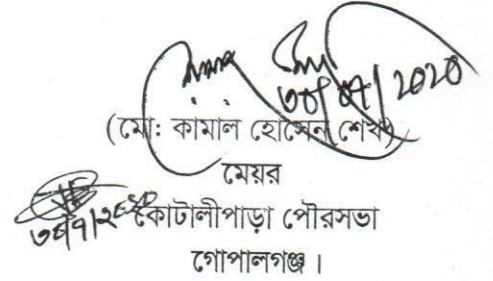 ৩০/০৭/২০২০
(মো: কামাল হোসেন শেখ)
মেয়র
৩০/৭/২০২০
কোটালীপাড়া পৌরসভা
গোপালগঞ্জ ।